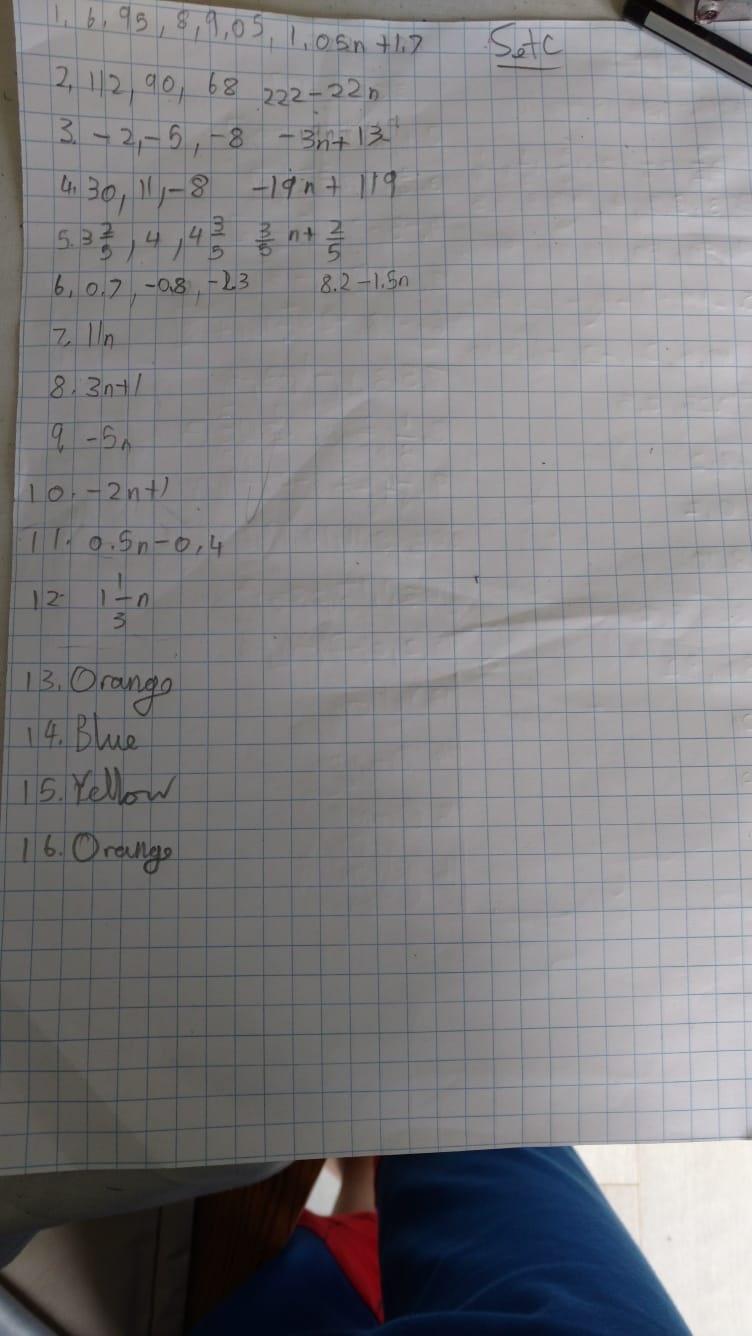 1, 6,95, 8, 9,05, 1,05n+1,7 Set C
2, 112, 90, 68 222-22n
3. -2, -5, -8 -3n+13
4. 30, 11, -8 -19n+119
5. 3 2/5, 4, 4 3/5 3/5 n+ 2/5
6, 0.7, -0.8, -2.3 8.2-1.5n
7, 11n
8. 3n+1
9 -5n
10. -2n+1
11. 0.5n-0,4
12 1 1/3 n
13. Orange
14. Blue
15. Yellow
16. Orange